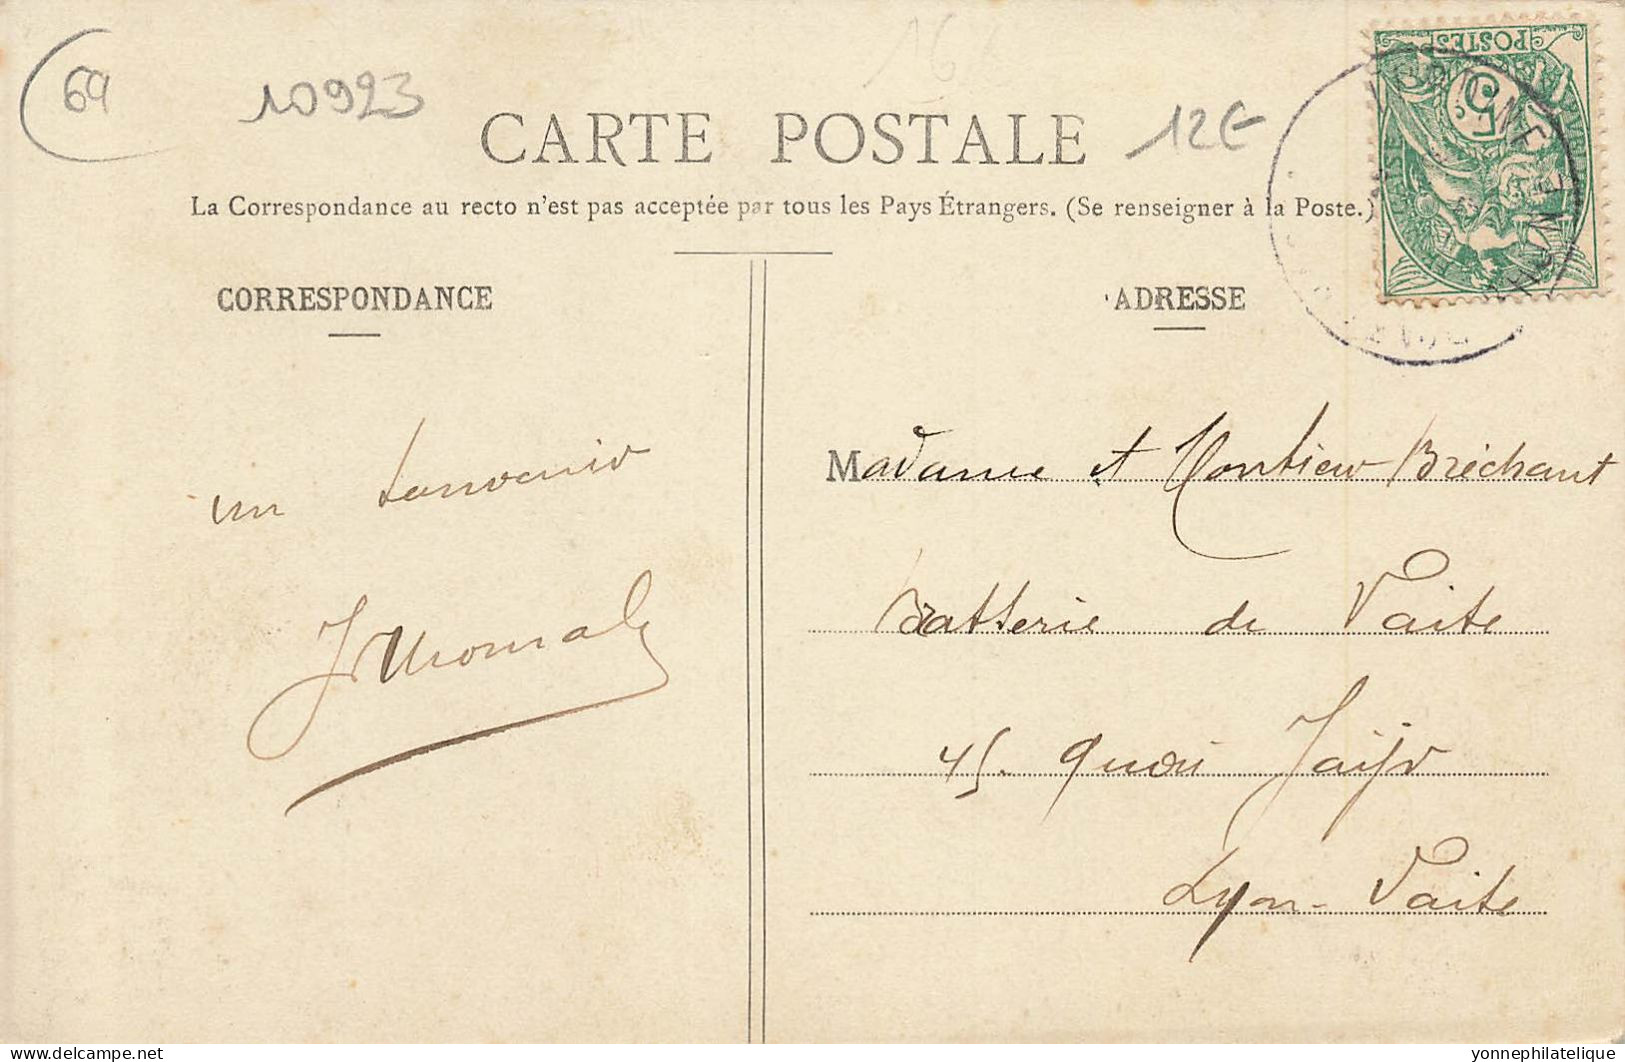 69
10923
16
12€
CARTE POSTALE
La Correspondance au recto n'est pas acceptée par tous les Pays Étrangers. (Se renseigner à la Poste.)
POSTES
5
CORRESPONDANCE
ADRESSE
un souvenir
Madame et Montieur Bréchant
Batterie de Vaite
45. quai Jaijr
Lyon-Vaite
delcampe.net
yonnephilatelique